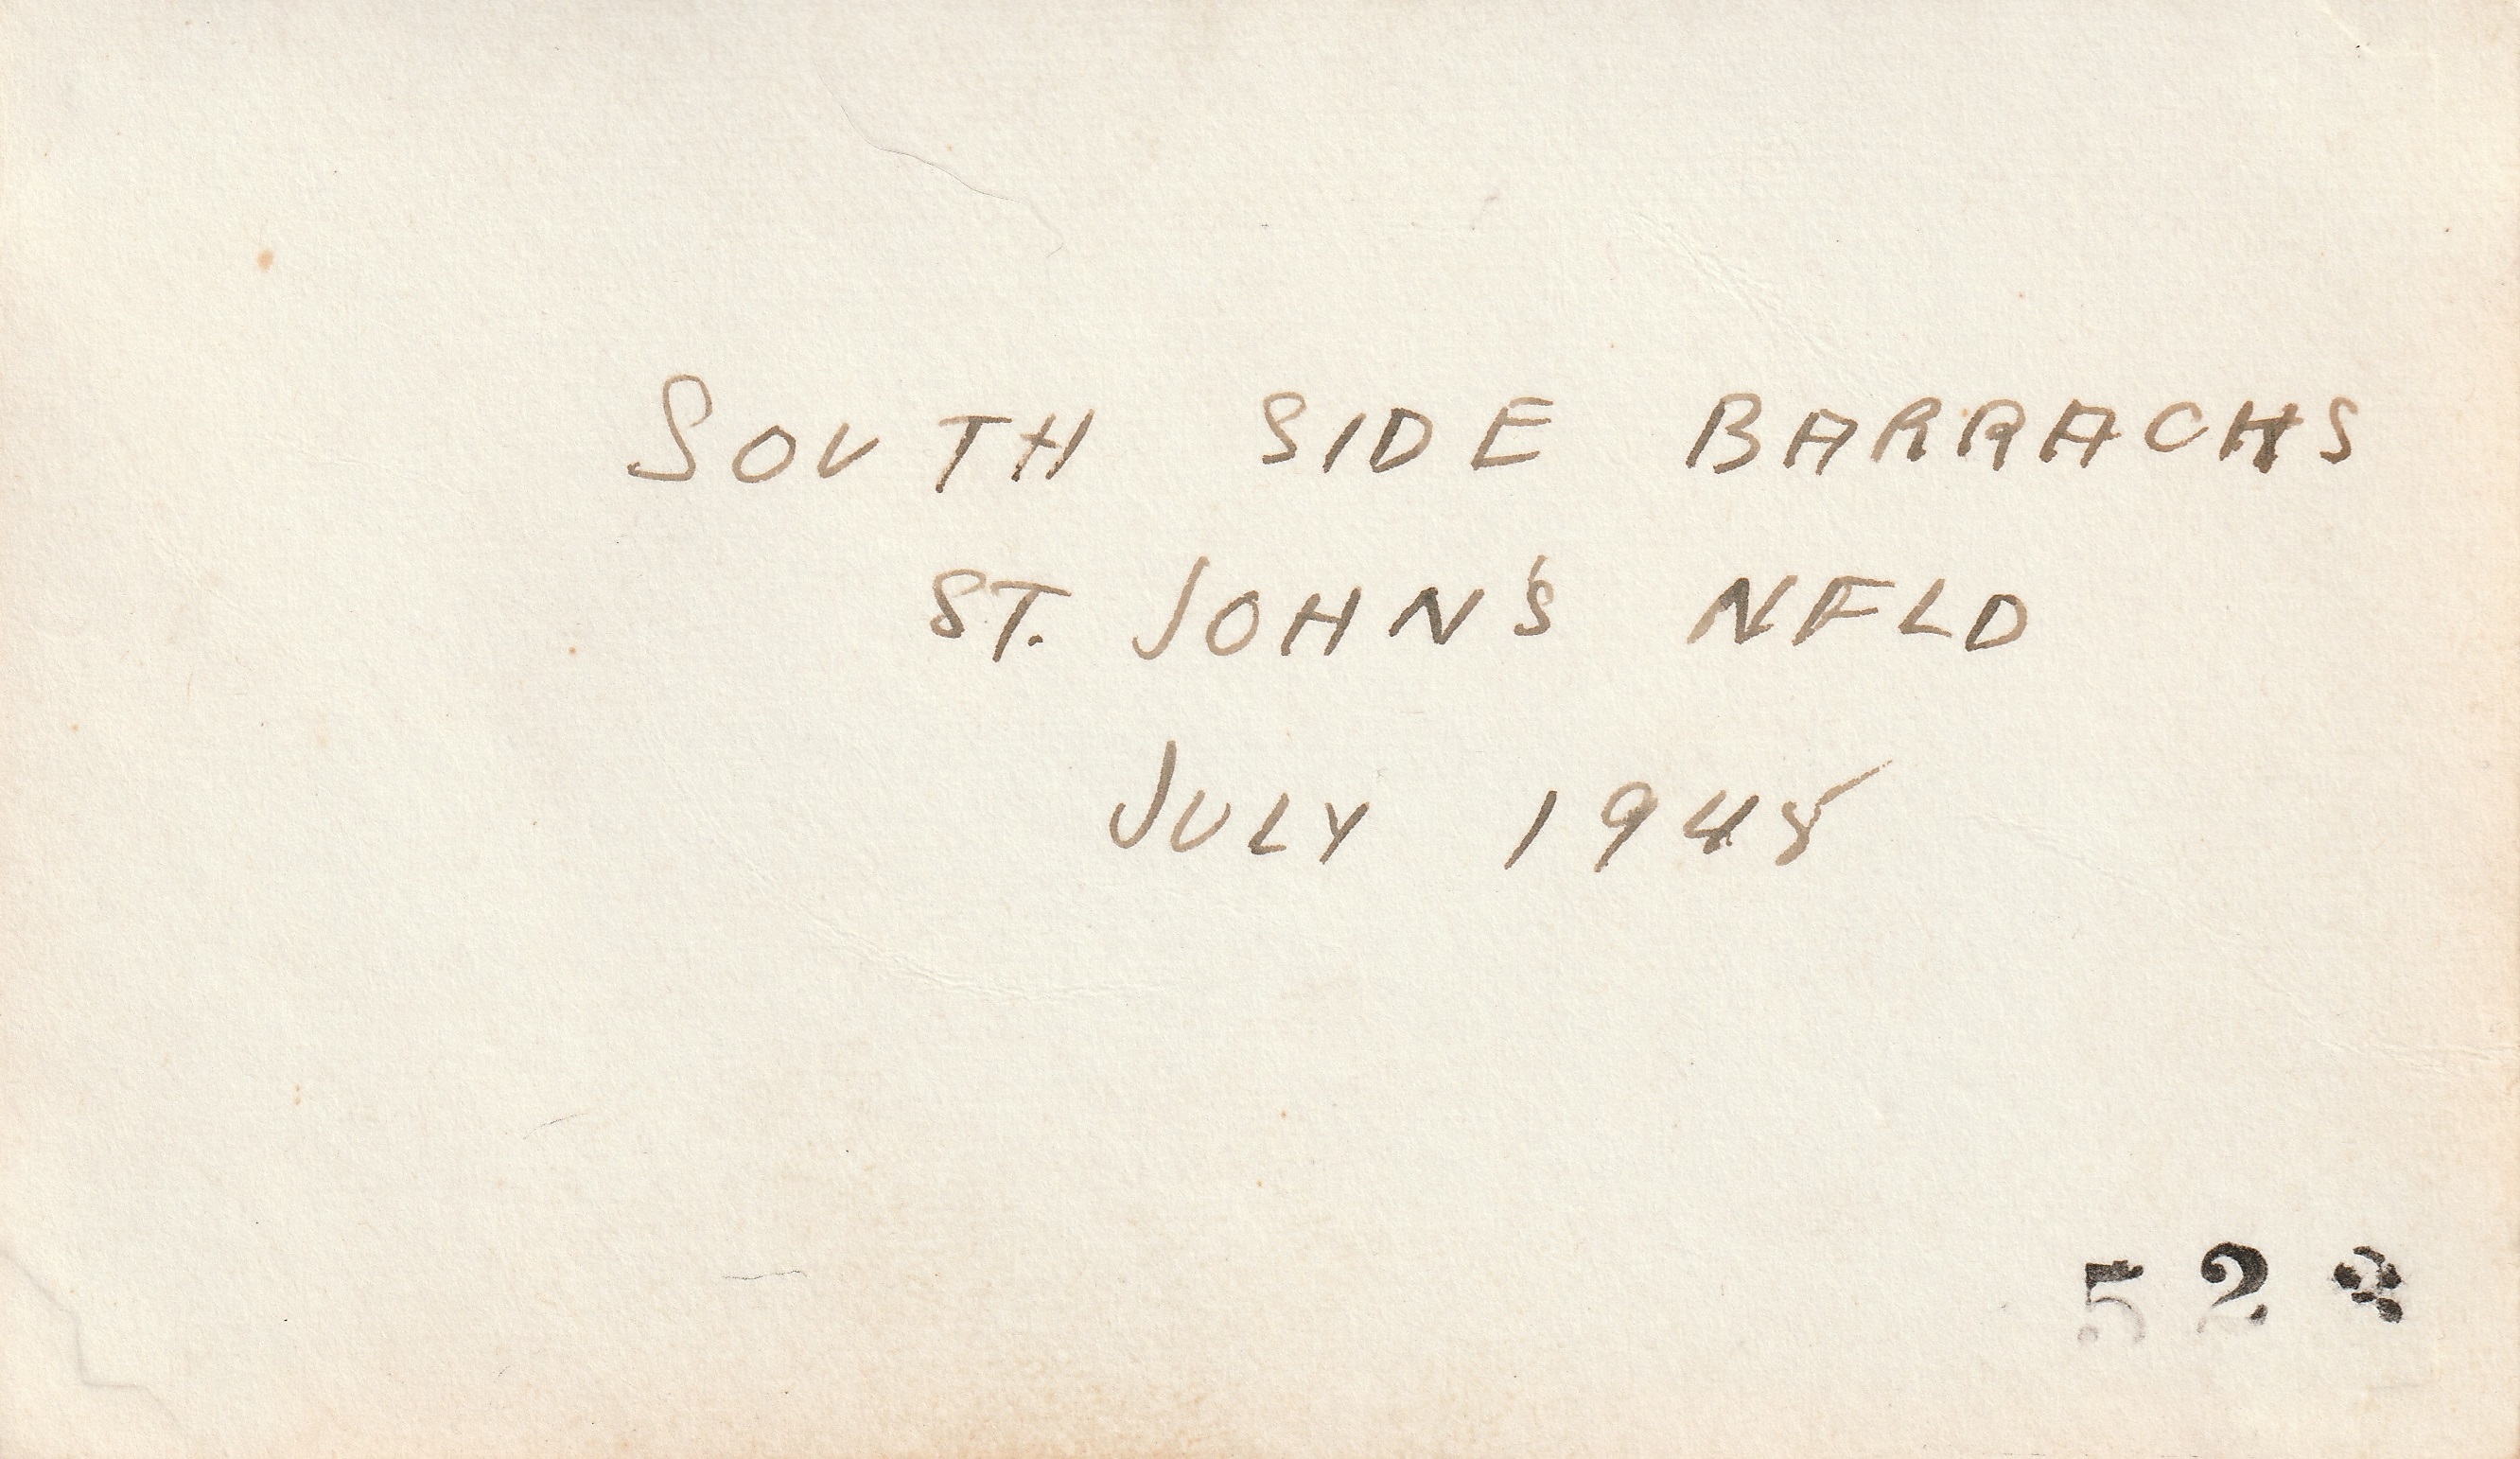 SOUTH SIDE BARRACKS
ST. JOHN'S NFLD
JULY 1945
52